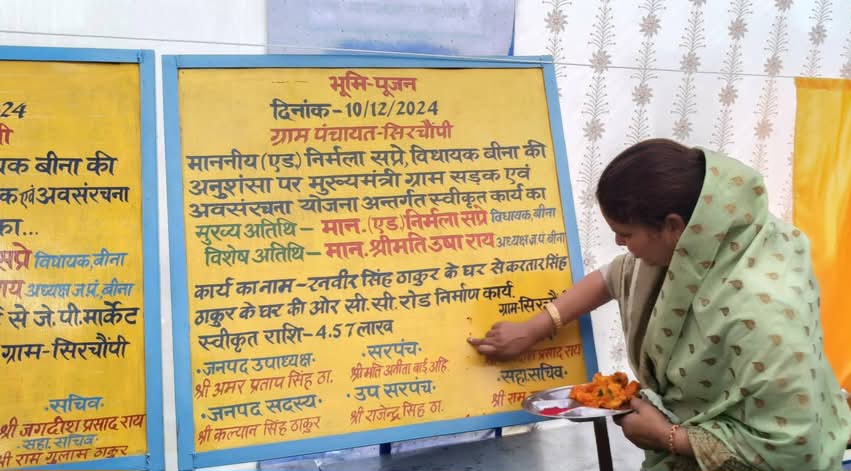 24
यक बीना की
क एवं अवसंरचना
का...
सप्रे विधायक, बीना
राय अध्यक्ष ज.पं. बीना
से जे.पी.मार्केट
ग्राम-सिरचौंपी
सचिव
श्री जगदीश प्रसाद राय
सहा. सचिव
श्री राम गुलाम ठाकुर
भूमि-पूजन
दिनांक-10/12/2024
ग्राम पंचायत-सिरचौंपी
माननीय (एड.) निर्मला सप्रे, विधायक बीना की
अनुशंसा पर मुख्यमंत्री ग्राम सड़क एवं
अवसंरचना योजना अन्तर्गत स्वीकृत कार्य का
मुख्य अतिथि- मान. (एड.) निर्मला सप्रे विधायक, बीना
विशेष अतिथि- मान. श्रीमति उषा राय अध्यक्ष ज.पं. बीना
कार्य का नाम- रनवीर सिंह ठाकुर के घर से करतार सिंह
ठाकुर के घर की ओर सी.सी. रोड निर्माण कार्य.
ग्राम-सिरचौं
स्वीकृत राशि-4.57 लाख
जनपद उपाध्यक्ष.
श्री अमर प्रताप सिंह ठा.
जनपद सदस्य.
श्री कल्यान सिंह ठाकुर
सरपंच.
श्रीमति अनीता बाई अहि.
उप सरपंच.
श्री राजेन्द्र सिंह ठा.
प्रसाद राय
सहा सचिव.
श्री राम